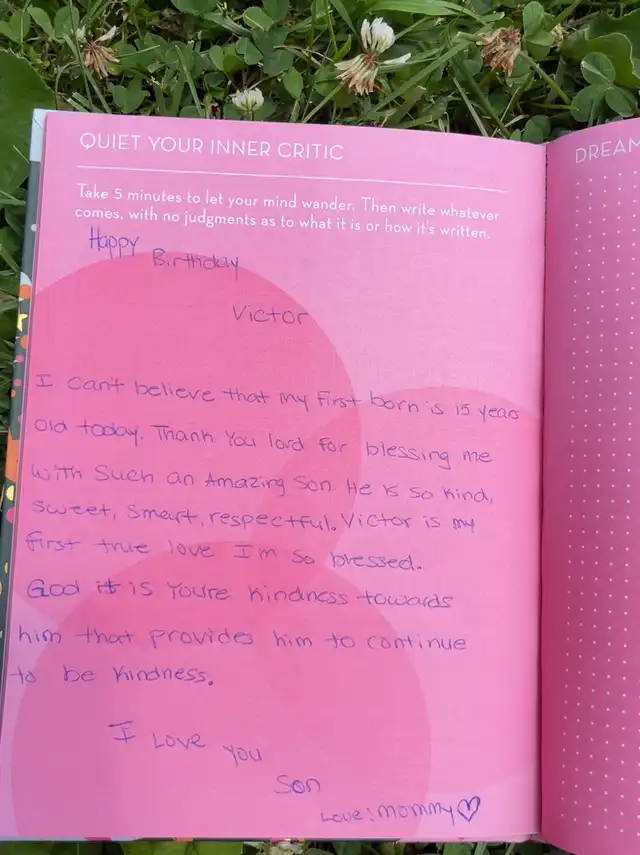 QUIET YOUR INNER CRITIC
Take 5 minutes to let your mind wander. Then write whatever
comes, with no judgments as to what it is or how it's written.
Happy Birthday
Victor
I can't believe that my first born is 15 years
old today. Thank you lord for blessing me
with such an Amazing son. He is so kind,
sweet, smart, respectful. Victor is my
first true love I'm so blessed.
God it is youre kindness towards
him that provides him to continue
to be kindness.
I Love you
Son
Love: mommy♡
DREAM